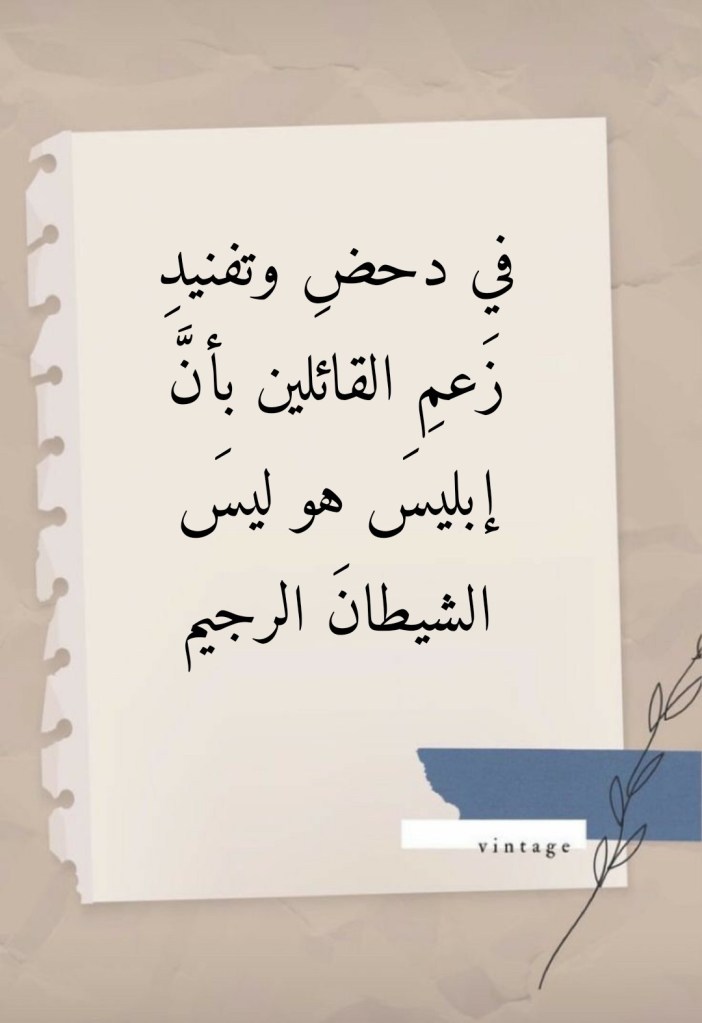 في دحضِ وتفنيدِ
زَعمِ القائلين بأنَّ
إبليسَ هو ليسَ
الشيطانَ الرجيم
vintage